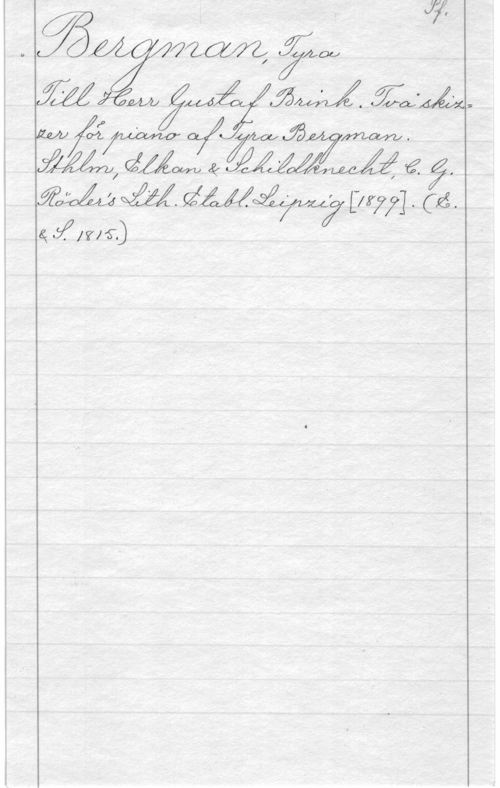 Pf.
Bergman, Tyra
Till Herr Gustaf Brink. Två skiz=
zer för piano af Tyra Bergman.
Sthlm, Elkan & Schildknecht, C. G.
Röder's Lith. Etabl. Leipzig [1899]. (E.
& S. 1815.)